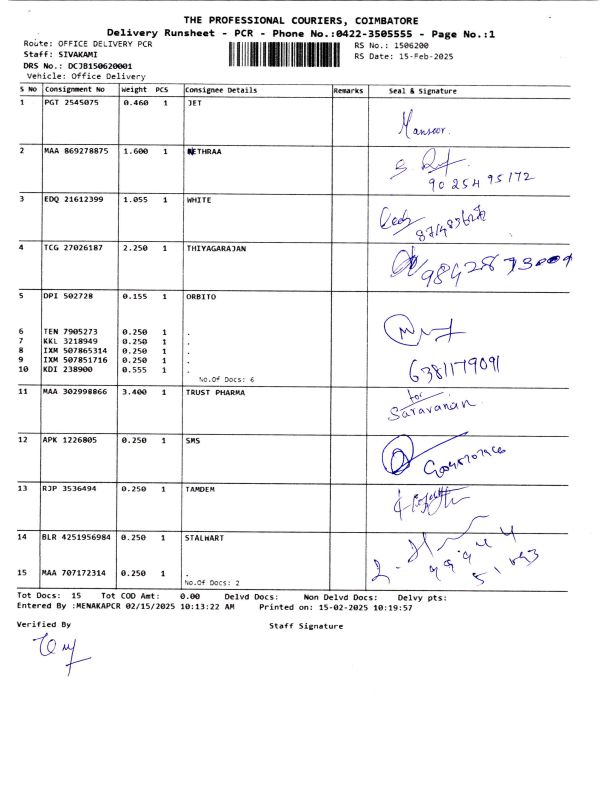 THE PROFESSIONAL COURIERS, COIMBATORE
Delivery Runsheet - PCR - Phone No.:0422-3505555 - Page No.:1
Route: OFFICE DELIVERY PCR RS No.: 1506200
Staff: SIVAKAMI RS Date: 15-Feb-2025
DRS No.: DCJB150620001
Vehicle: Office Delivery
S No Consignment No Weight PCS Consignee Details Remarks Seal & Signature
1 PGT 2545075 0.460 1 JET
Mansoor.
2 MAA 869278875 1.600 1 NETHRAA
90254 95172
3 EDQ 21612399 1.055 1 WHITE
4 TCG 27026187 2.250 1 THIYAGARAJAN
5 DPI 502728 0.155 1 ORBITO
6 TEN 7905273 0.250 1 .
7 KKL 3218949 0.250 1 .
8 IXM 507865314 0.250 1 .
9 IXM 507851716 0.250 1 .
10 KDI 238900 0.555 1 .
6381179091
No.Of Docs: 6
11 MAA 302998866 3.400 1 TRUST PHARMA
for
Saravanan.
12 APK 1226805 0.250 1 SMS
13 RJP 3536494 0.250 1 TAMDEM
14 BLR 4251956984 0.250 1 STALWART
15 MAA 707172314 0.250 1 .
No.Of Docs: 2
Tot Docs: 15 Tot COD Amt: 0.00 Delvd Docs: Non Delvd Docs: Delvy pts:
Entered By :MENAKAPCR 02/15/2025 10:13:22 AM Printed on: 15-02-2025 10:19:57
Verified By Staff Signature